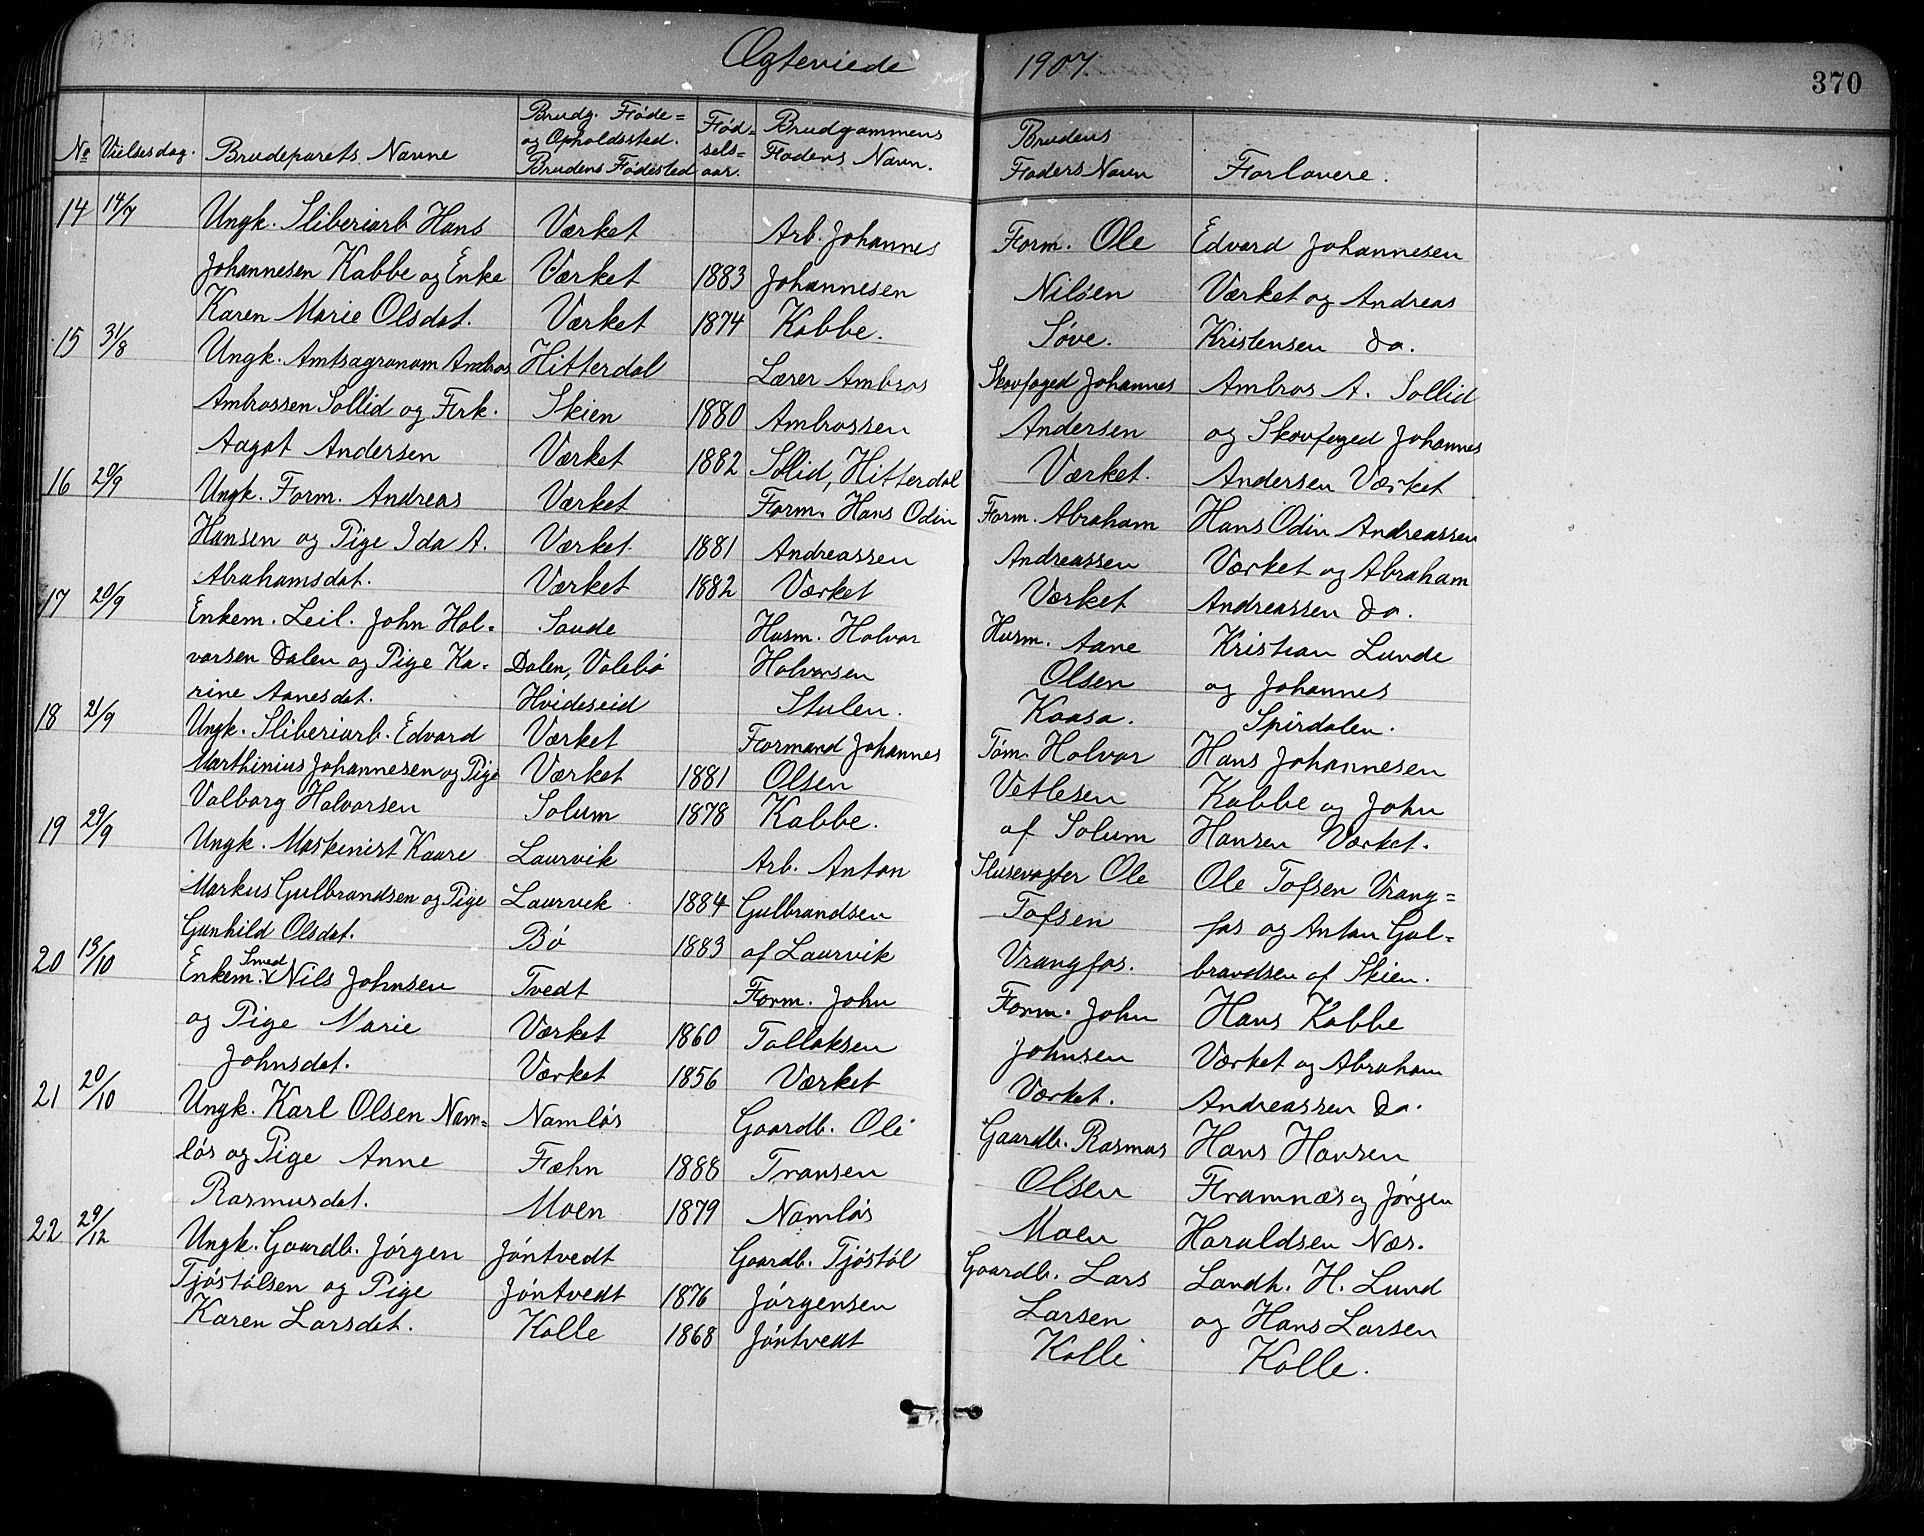 Ægteviede 1907 370
No Vielsesdag. Brudeparets Navne Brudg. Føde= og Opholdssted. Brudens Fødested Fød= sels= aar. Brudgommens Faders Navn. Brudens Faders Navn Forlovere.
14 14/7 Ungk. Sliberiarb Hans Værket Arb. Johannes Form. Ole Edvard Johannesen
Johannesen Kabbe og Enke Værket 1883 Johannesen Nilsen Værket og Andreas
Karen Marie Olsdat. Værket 1874 Kabbe. Søve. Kristensen do.
15 31/8 Ungk. Amtsagronom Ambros Hitterdal Lærer Ambros Skovfoged Johannes Ambros A. Sollid
Ambrossen Sollid og Frk. Skien 1880 Ambrossen Andersen og Skovfoged Johannes
Aagot Andersen Værket 1882 Sollid, Hitterdal Værket. Andersen Værket
16 20/9 Ungk. Form. Andreas Værket Form. Hans Odin Form. Abraham Hans Odin Andreassen
Hansen og Pige Ida A. Værket 1881 Andreassen Andreassen Værket og Abraham
Abrahamsdat. Værket 1882 Værket Værket Andreassen do.
17 20/9 Enkem. Leil. John Hal= Saude Husm. Halvor Husm. Aane Kristian Lunde
vorsen Dalen og Pige Ka= Dalen, Valebø Halvorsen Olsen og Johannes
rine Aanesdat. Hvideseid Stulen. Kaasa. Spirdalen.
18 21/9 Ungk. Sliberiarb. Edvard Værket Formand Johannes Tøm. Halvor Hans Johannesen
Marthinius Johannesen og Pige Værket 1881 Olsen Vetlesen Kabbe og John
Valborg Halvorsen Solum 1878 Kabbe. af Solum Hansen Værket.
19 29/9 Ungk. Maskenist Kaare Laurvik Arb. Anton Slusevogter Ole Ole Tofsen Vrang=
Markus Gulbrandsen og Pige Laurvik 1884 Gulbrandsen Tofsen fos og Anton Gul=
Gunhild Olsdat. Bø 1883 af Laurvik Vrangfos. brandsen af Skien.
20 13/10 Enkem. Smed Nils Johnsen Tvedt Form. John Form. John Hans Kabbe
og Pige Marie Værket 1860 Tallaksen Johnsen Værket og Abraham
Johnsdat. Værket 1856 Værket Værket. Andreassen do.
21 20/10 Ungk. Karl Olsen Nam= Namløs Gaardb. Ole Gaardb. Rasmus Hans Hansen
løs og Pige Anne Fæhn 1888 Transen Olsen Framnæs og Jørgen
Rasmusdat. Moen 1879 Namløs Moen Haraldsen Næs.
22 29/12 Ungk. Gaardb. Jørgen Jøntvedt Gaardb. Tjøstøl Gaardb. Lars Landh. H. Lund
Tjøstølsen og Pige Jøntvedt 1876 Jørgensen Larsen og Hans Larsen
Karen Larsdat. Kolle 1868 Jøntvedt Kolle Kolle.